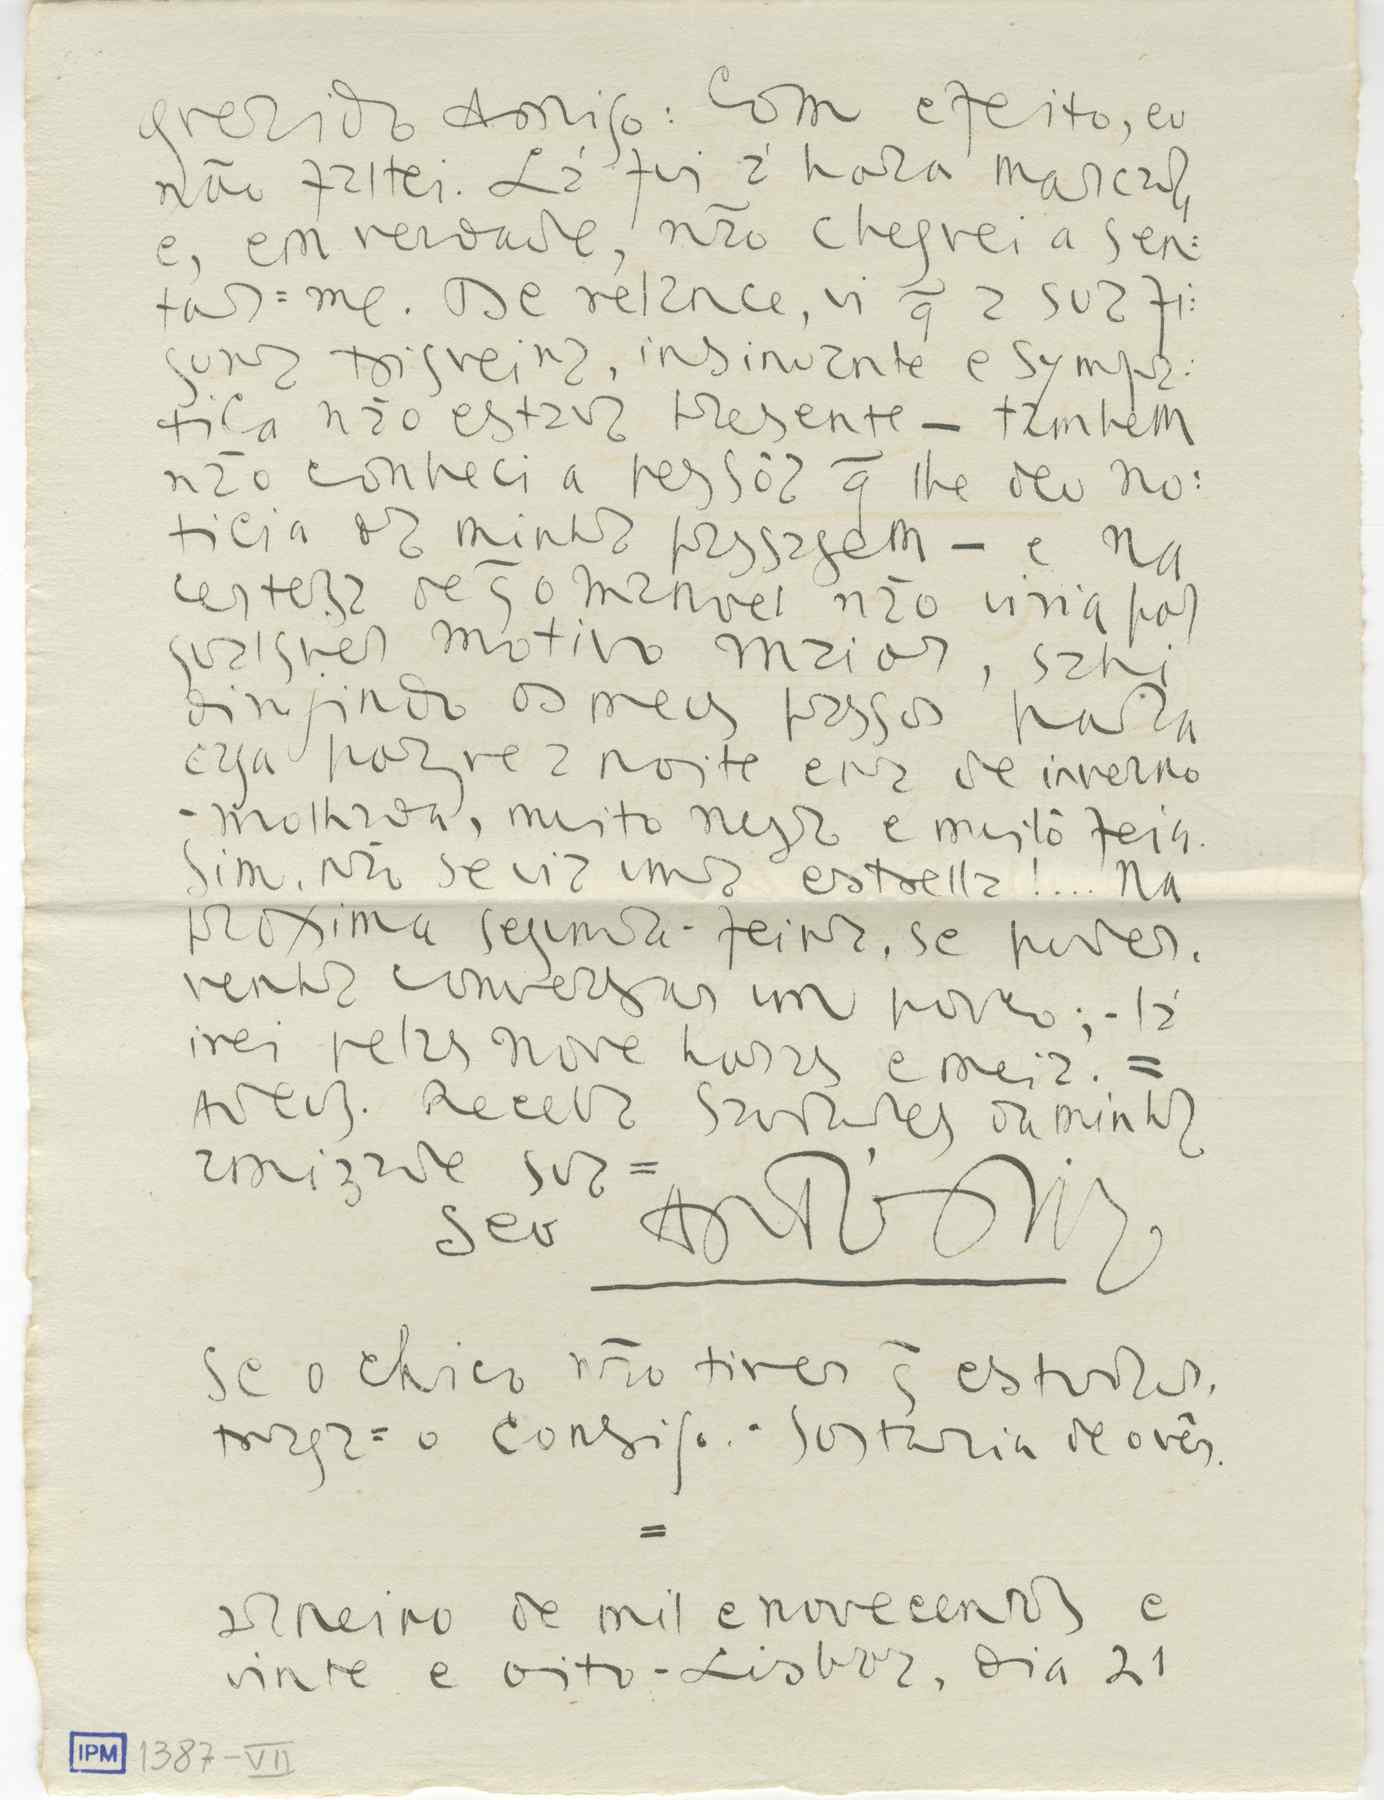 Querido Amigo: Com efeito, eu
não faltei. Lá fui á hora marcada,
e, em verdade, não cheguei a sen:
tar=me. De relance, vi q̃ a sua fi:
gura trigueira, insinuante e sympa:
tica não estava presente — tambem
não conheci a pessôa q̃ lhe deu no:
ticia da minha passagem — e na
certeza de q̃ o Manuel não viria por
qualquer motivo maior, sahi
dirijindo os meus passos para
casa porque a noite era de inverno
- molhada, muito negra e muito feia.
Sim, não se via uma estrella!.... Na
proxima segunda-feira, se puder,
venha conversar um pouco; - lá
irei pelas nove horas e meia. =
Adeus. Receba saudades da minha
amizade sua =
Seu António
Se o chico não tiver q̃ estudar,
traga=o consigo. - Gostaria de o vêr.
=
Janeiro de mil e novecentos e
vinte e oito - Lisboa, dia 21
IPM 1387-VII